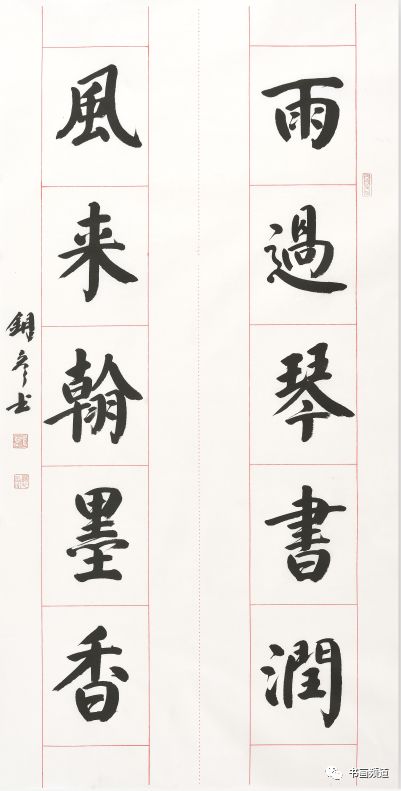 雨過琴書潤
風来翰墨香
书画频道